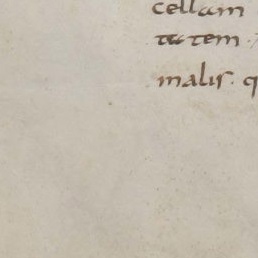 cellam
tatem
malis· q